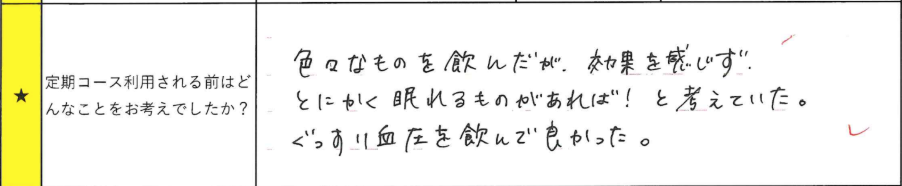 ★
定期コース利用される前はど
んなことをお考えでしたか？
色々なものを飲んだが、効果を感じず、
とにかく眠れるものがあれば！と考えていた。
ぐっすり血圧を飲んで良かった。